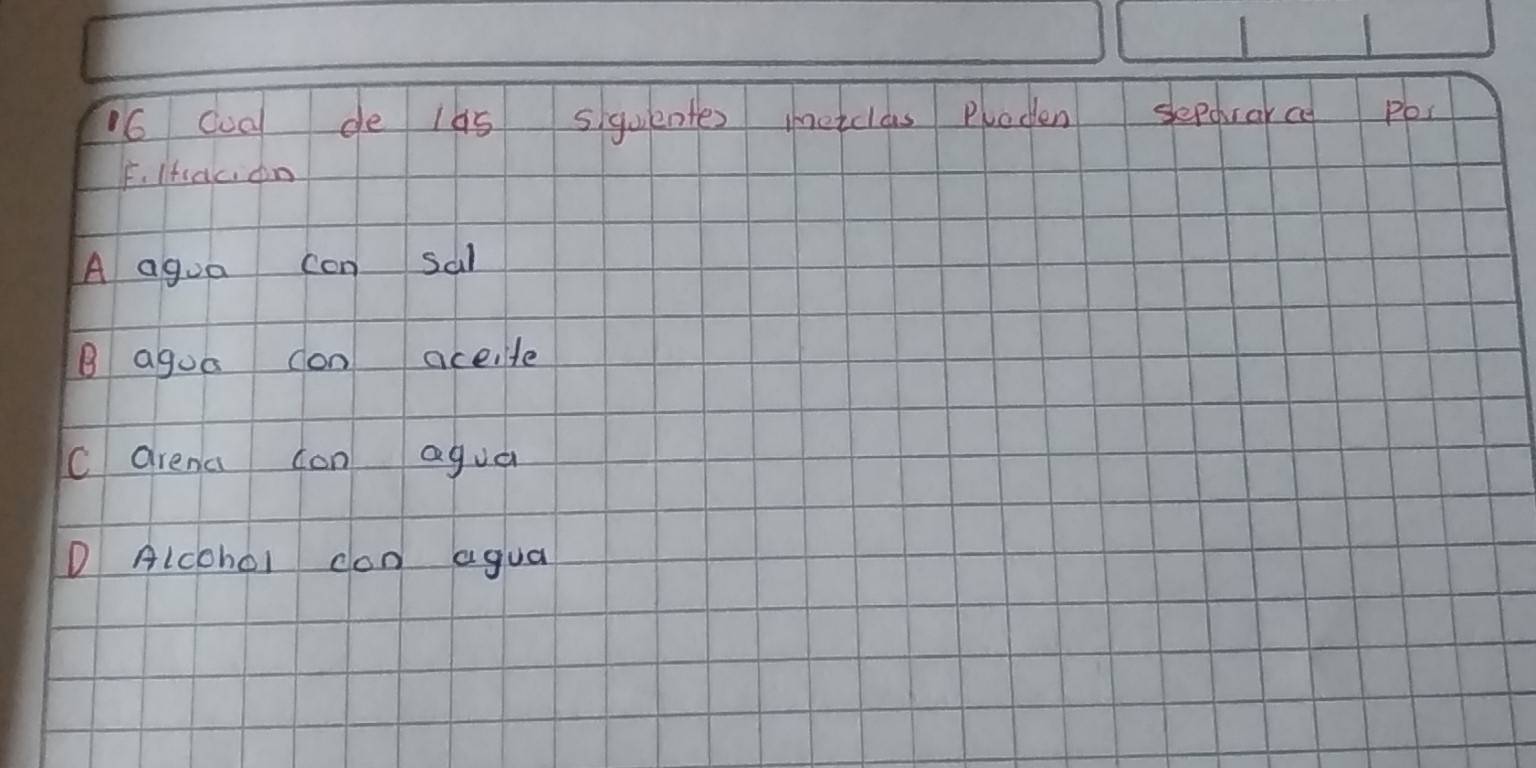 16 Cual de las siguientes mezclas Pueden separarce Por
Filtracion
A agua con sal
B agua con aceite
C arena con agua
D Alcohol con agua